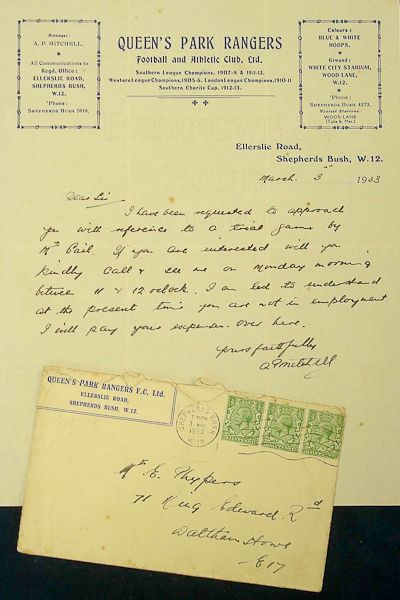 Manager:
A. P. MITCHELL.
All Communications to
Regd. Office:
ELLERSLIE ROAD,
SHEPHERDS BUSH,
W.12.
'Phone:
SHEPHERDS BUSH 2618.
QUEEN'S PARK RANGERS
Football and Athletic Club, Ltd.
Southern League Champions, 1907-8 & 1911-12.
Western League Champions, 1905-6. London League Champions, 1910-11
Southern Charity Cup, 1912-13.
Colours:
BLUE & WHITE
HOOPS.
Ground:
WHITE CITY STADIUM,
WOOD LANE,
W.12.
'Phone:
SHEPHERDS BUSH 4323.
Nearest Stations:
WOOD LANE
(Tube & Met.)
Ellerslie Road,
Shepherds Bush, W.12.
March 3rd 1933
Dear Sir
I have been requested to approach
you with reference to a trial game by
Mr Pail. If you are interested will you
kindly call & see me on Monday morning
between 11 & 12 o'clock. I am led to understand
at the present time you are not in employment
I will pay your expenses over here.
yours faithfully
A P Mitchell
QUEEN'S PARK RANGERS F.C. Ltd.
ELLERSLIE ROAD,
SHEPHERDS BUSH, W.12.
SHEPHERDS BUSH
1933
W.12
Mr E.
71 King Edward Rd
Waltham Stowe
E 17